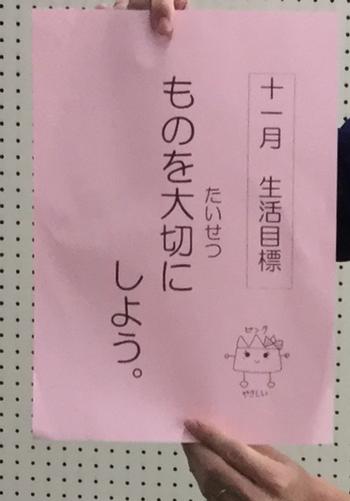 十一月 生活目標
ものを大切に
たいせつ
しよう。
ピンク
やさしい